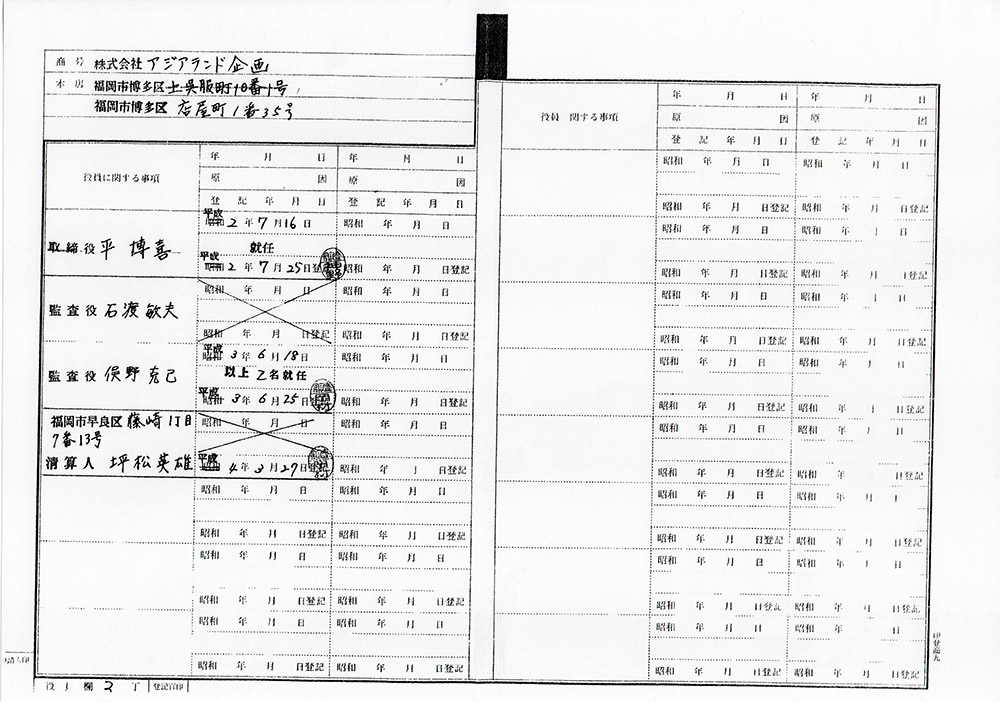 商号 株式会社 アジアランド企画
本店 福岡市博多区上呉服町10番1号
福岡市博多区 店屋町1番35号
役員に関する事項
年 月 日 年 月 日
原 因 原 因
登記 年 月 日 登記 年 月 日
取締役 平 博喜
平成 昭和 2年7月16日 昭和 年 月 日
就任
平成 昭和 2年7月25日登記 昭和 年 月 日登記
監査役 石渡敏夫
昭和 年 月 日 昭和 年 月 日
昭和 年 月 日登記 昭和 年 月 日登記
監査役 俣野克己
平成 昭和 3年6月18日 昭和 年 月 日
以上2名就任
平成 昭和 3年6月25日 昭和 年 月 日登記
福岡市早良区 藤崎1丁目
7番13号
清算人 坪松英雄
昭和 年 月 日 昭和 年 月 日
平成 4年3月27日登記 昭和 年 月 日登記
昭和 年 月 日 昭和 年 月 日
昭和 年 月 日登記 昭和 年 月 日登記
昭和 年 月 日 昭和 年 月 日
昭和 年 月 日登記 昭和 年 月 日登記
昭和 年 月 日 昭和 年 月 日
昭和 年 月 日登記 昭和 年 月 日登記
欄 3 丁 登記官印
役員 関する事項
年 月 日 年 月 日
原 因 原 因
登記 年 月 日 登記 年 月 日
昭和 年 月 日 昭和 年 月 日
昭和 年 月 日登記 昭和 年 月 日登記
昭和 年 月 日 昭和 年 月 日
昭和 年 月 日登記 昭和 年 月 日登記
昭和 年 月 日 昭和 年 月 日
昭和 年 月 日登記 昭和 年 月 日登記
昭和 年 月 日 昭和 年 月 日
昭和 年 月 日登記 昭和 年 月 日登記
昭和 年 月 日 昭和 年 月 日
昭和 年 月 日登記 昭和 年 日登記
昭和 年 月 日 昭和 年 月
昭和 年 月 日登記 昭和 年 月 日登記
昭和 年 月 日 昭和 年 月 日
昭和 年 月 日登記 昭和 年 月 日登記
昭和 年 月 日 昭和 日
昭和 年 月 日登記 昭和 年 月 日登記